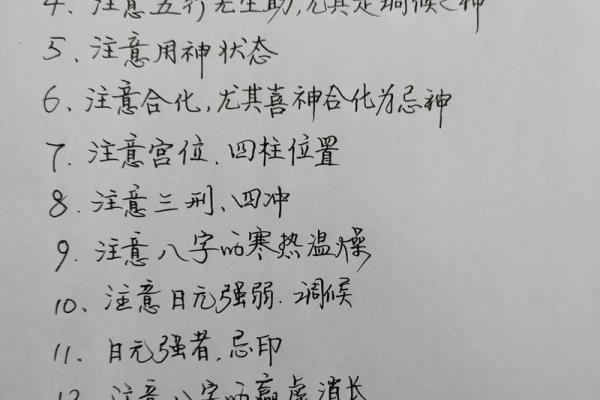 4、注意五行无生助,尤其是调候之神
5、注意用神状态
6、注意合化,尤其喜神合化为忌神
7、注意宫位、四柱位置
8、注意三刑、四冲
9、注意八字的寒热温燥
10、注意日元强弱、调候
11、日元强者,忌印
12、注意八字的赢虚消长